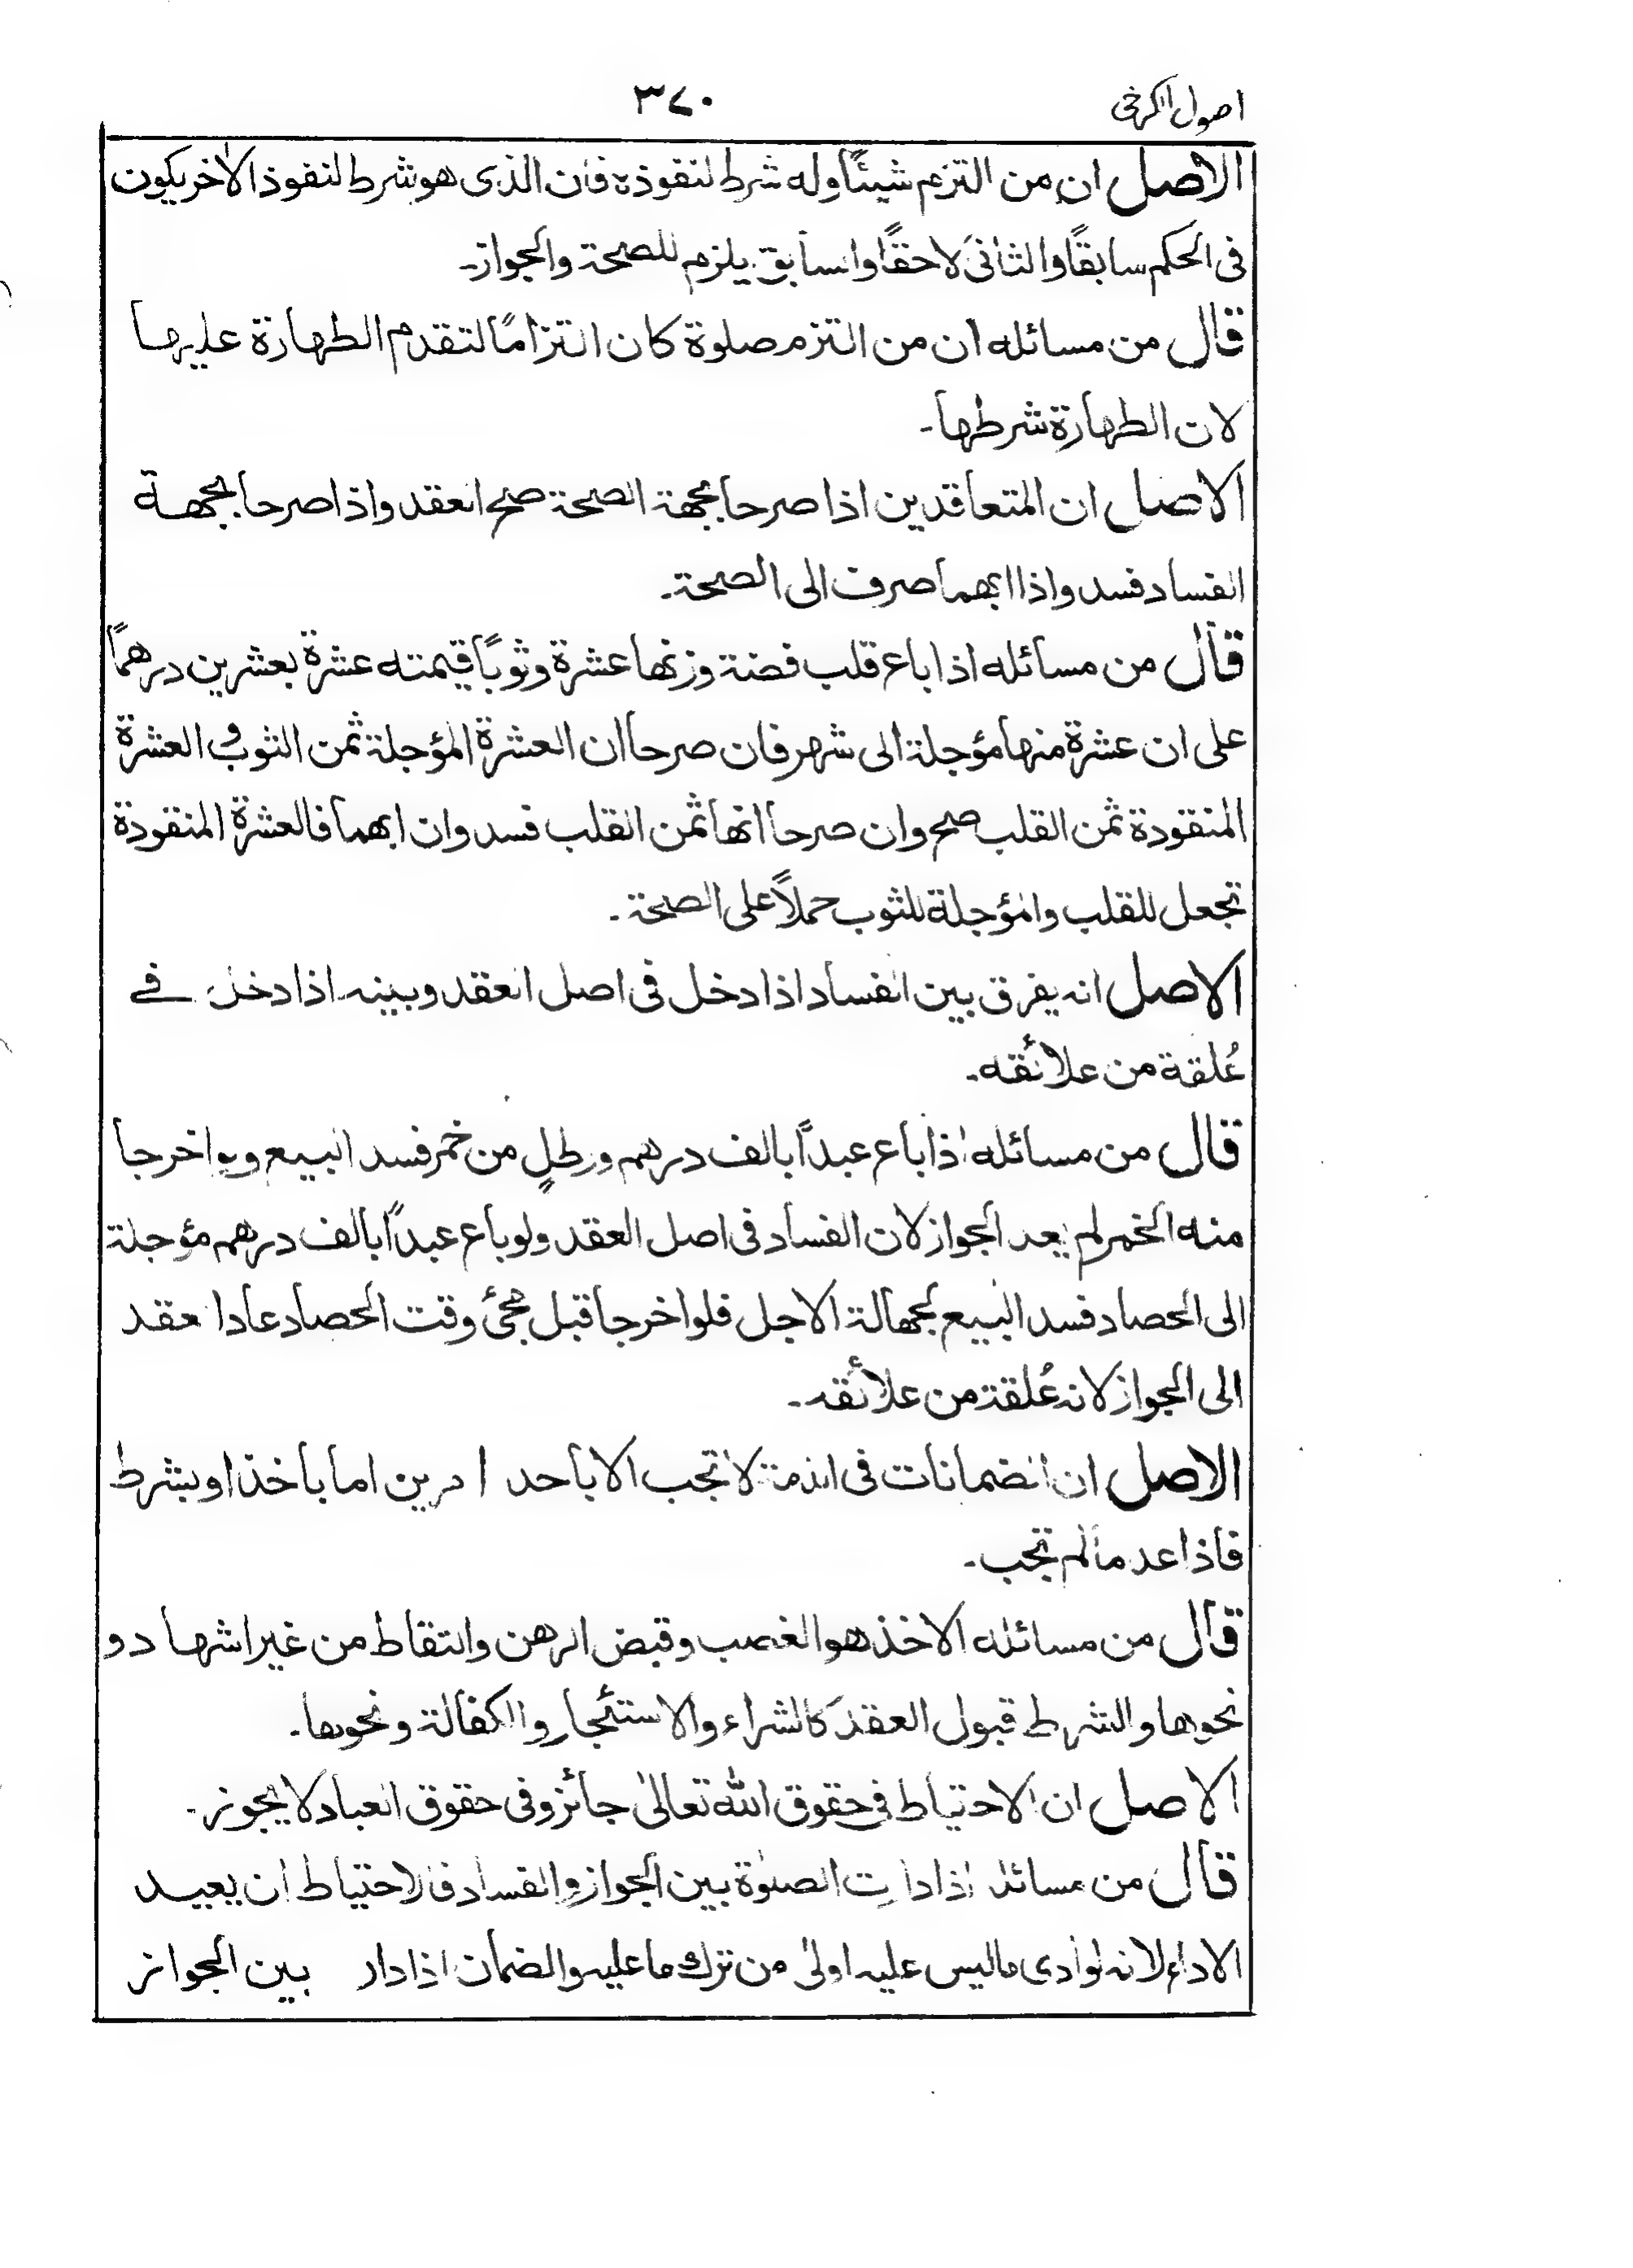 اصول الكرخى
٣٧٠
الاصل ان من التزم شيئًا وله شرط لنفوذه فان الذى هو شرط لنفوذ الاخر يكون
فى الحكم سابقًا والثانى لاحقًا والسابق يلزم للصحة والجواز۔
قال من مسائله ان من التزم صلوة كان التزامًا لتقدم الطهارة عليها
لان الطهارة شرطها۔
الاصل ان المتعاقدين اذا صرحا بجهة الصحة صح العقد واذا صرحا بجهة
الفساد فسد واذا ابهما صرف الى الصحة۔
قال من مسائله اذا باع قلب فضة وزنها عشرة وثوبًا قيمته عشرة بعشرين درهمًا
على ان عشرة منها مؤجلة الى شهر فان صرحا ان العشرة المؤجلة ثمن الثوب و العشرة
المنقودة ثمن القلب صح وان صرحا انها ثمن القلب فسد وان ابهما فالعشرة المنقودة
تجعل للقلب والمؤجلة للثوب حملاً على الصحة۔
الاصل انه يفرق بين الفساد اذا دخل فى اصل العقد وبينه اذا دخل فے
عُلقة من علائقه۔
قال من مسائله اذا باع عبدًا بالف درهم ورطلٍ من خمر فسد البيع ولو اخرجا
منه الخمر لم يعد الجواز لان الفساد فى اصل العقد ولو باع عبدًا بالف درهم مؤجلة
الى الحصاد فسد البيع لجهالة الاجل فلو اخرجا قبل مجئ وقت الحصاد عاد العقد
الى الجواز لانه عُلقة من علائقه۔
الاصل ان الضمانات فى الذمة لا تجب الا باحد امرين اما باخذ او بشرط
فاذا عدما لم تجب۔
قال من مسائله الاخذ هو الغصب وقبض الرهن والتقاط من غير اشهاد و
نحوها والشرط قبول العقد كالشراء والاستئجار والكفالة ونحوها۔
الاصل ان الاحتياط فى حقوق الله تعالىٰ جائز وفى حقوق العباد لا يجوز۔
قال من مسائله اذا دارت الصلوٰة بين الجواز والفساد فالاحتياط ان يعيد
الاداء لانه لو ادى ما ليس عليه اولىٰ من ترك ما عليه والضمان اذا دار بين الجواز